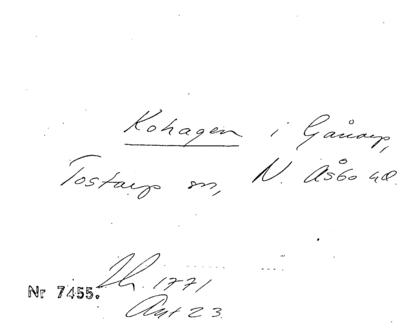 Kohagen i Gånarp,
Tostarp sn, N. Åsbo hd.
Nr 7455.
Th. 1771
Akt 23